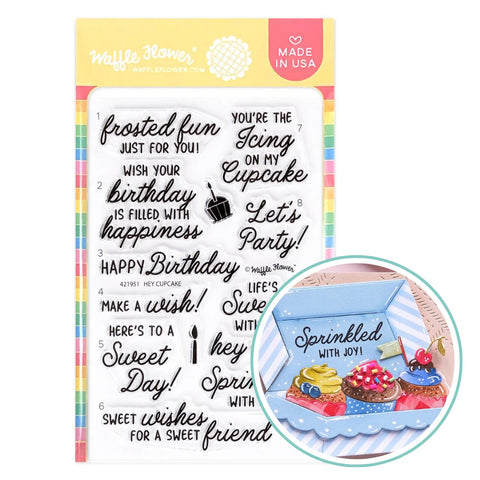 Waffle Flower®
WAFFLEFLOWER.COM
MADE
IN USA
1
frosted fun
JUST FOR YOU!
2
WISH YOUR
birthday
IS FILLED WITH
happiness
3
HAPPY Birthday
421951 HEY CUPCAKE
4
MAKE A wish!
5
HERE'S TO A
Sweet
Day!
6
SWEET wishes
FOR A SWEET friend
7
YOU'RE THE
Icing
ON MY
Cupcake
8
Let's
Party!
© Waffle Flower®
LIFE'S
WITH
hey
WITH
Sprinkled
WITH JOY!